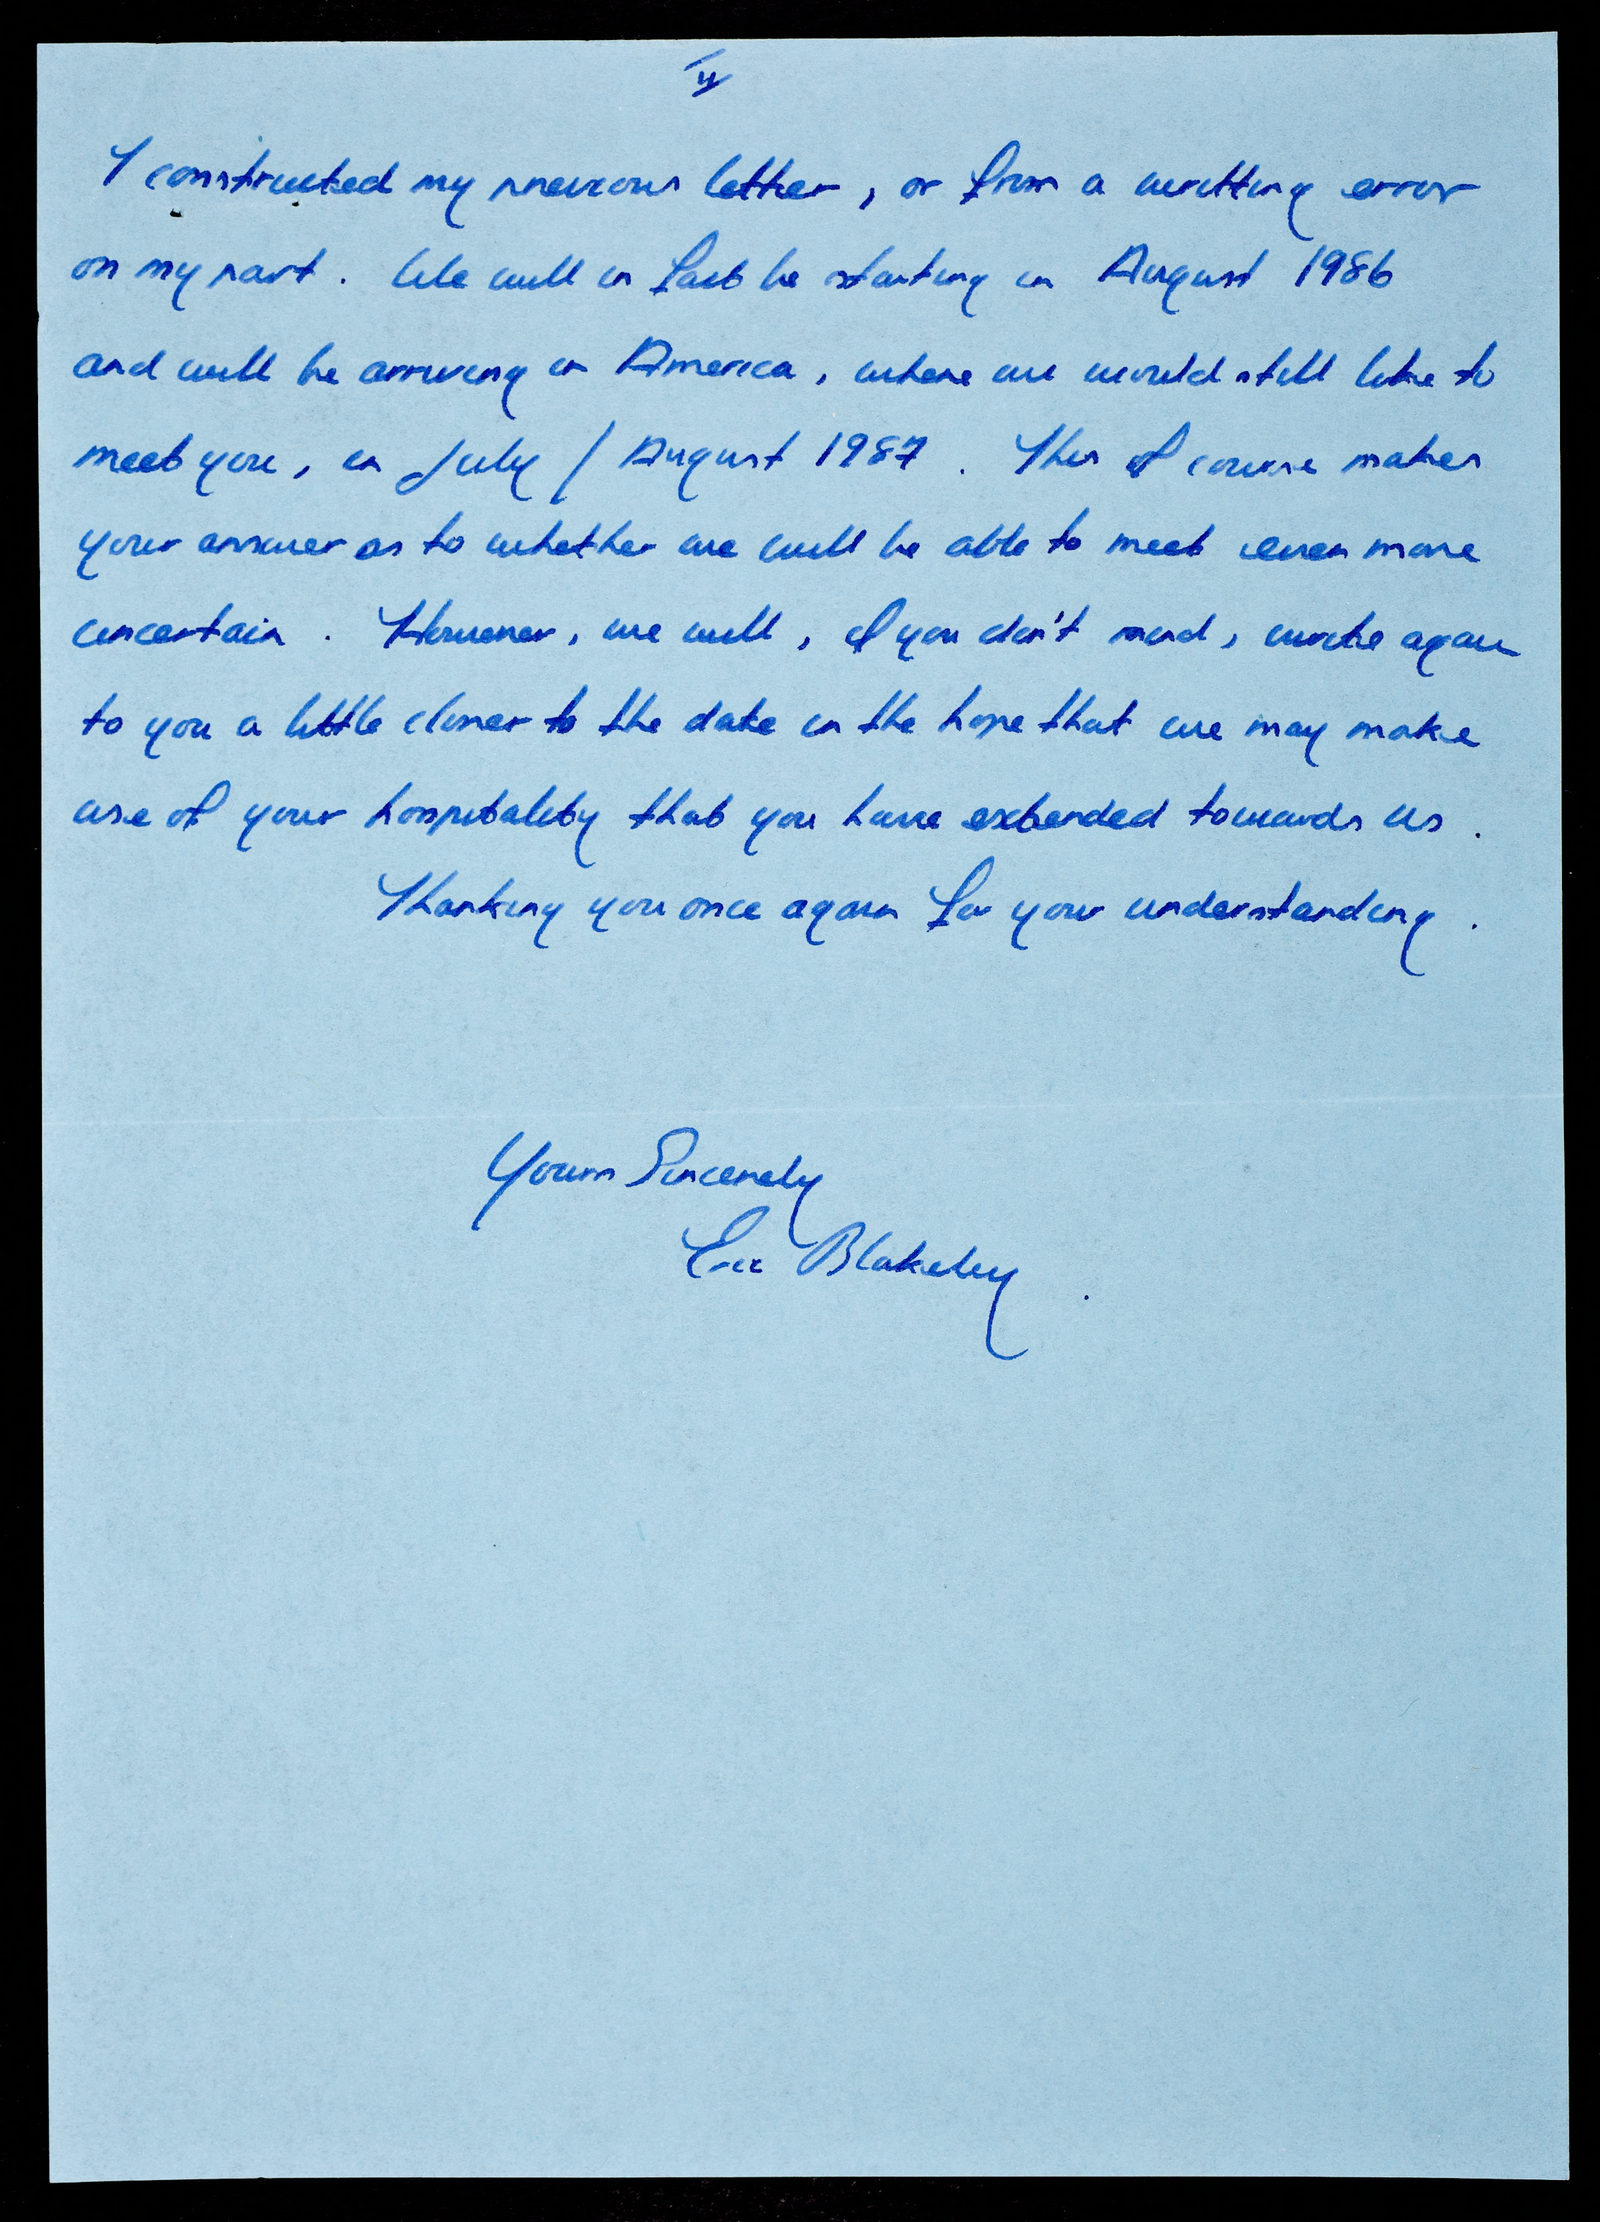 I constructed my previous letter, or from a writting error
on my part. We will in fact be starting in August 1986
and will be arriving in America, where we would still like to
meet you, in July / August 1987. This of course makes
your answer as to whether we will be able to meet even more
uncertain. However, we will, if you don't mind, write again
to you a little closer to the date in the hope that we may make
use of your hospitality that you have extended towards us.
Thanking you once again for your understanding.
Yours Sincerely
Eric Blakeley.